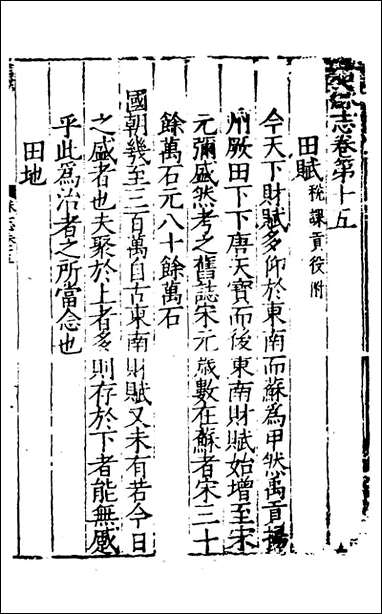 姑蘇志卷第十五
田賦 稅課貢役附
今天下財賦多仰於東南而蘇為甲然禹貢揚
州厥田下下唐天寶而後東南財賦始增至宋
元彌盛然考之舊誌宋元歲數在蘇者宋三十
餘萬石元八十餘萬石
國朝幾至三百萬自古東南財賦又未有若今日
之盛者也夫聚於上者多則存於下者能無感
乎此為治者之所當念也
田地